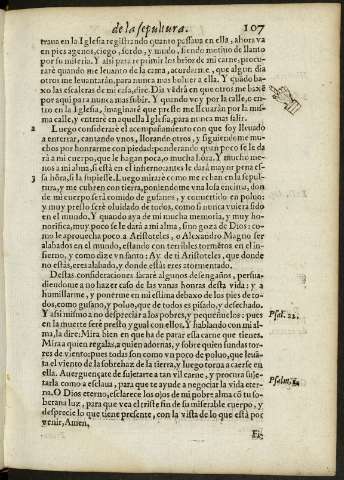 de la sepultura. 107
traua en la Iglesia registrando quanto passaua en ella, ahora va
en pies agenos, ciego, sordo, y mudo, siendo motiuo de llanto
por su miseria. Y assi para reprimir los brios de mi carne, procu-
raré quando me leuanto de la cama, acordarme, que algun dia
otros me leuantarán, para nunca mas boluer a ella. Y quādo ba-
xo las escaleras de mi casa, dire. Dia vēdrà en que otros me baxē
por aqui para nunca mas subir. Y quando voy por la calle, o en-
tro en la Iglesia, imaginaré que presto me lleuarán por la mis-
ma calle, y entraré en aquella Iglesia, para nunca mas salir.
2 Luego consideraré el acompañamiento con que soy lleuado
a enterrar, cantando vnos, llorando otros, y siguiendome mu-
chos por honrarme con piedad; ponderando quan poco se le da-
rà a mi cuerpo, que le hagan poca, o mucha hōra. Y mucho me-
nos a mi alma, si està en el infierno: antes le darà mayor pena es-
3 sa hōra, si la supiesse. Luego miraré como me echan en la sepul-
tura, y me cubren con tierra, poniendome vna losa encima, don
de mi cuerpo serà comido de gusanos, y conuertido en poluo:
y muy presto serè oluidado de todos, como si nunca vuiera sido
en el mundo. Y quando aya de mi mucha memoria, y muy ho-
norifica, muy poco se le darà a mi alma, si no goza de Dios: co-
mo le aprouecha poco a Aristoteles, o Alexandro Magno ser
alabados en el mundo, estando con terribles tormētos en el in-
fierno, y como dize vn santo: Ay de ti Aristoteles, que donde
no estàs, eres alabado, y donde estàs eres atormentado.
Destas consideraciones sacaré algunos desengaños, persua-
diendome a no hazer caso de las vanas honras desta vida: y a
humillarme, y ponerme en mi estima debaxo de los pies de to-
dos, como gusano, y poluo, que de todos es pisado, y desechado.
Y assi mismo a no despreciar a los pobres, y pequeñuelos: pues Psal. 21.
en la muerte serè presto y gual con ellos. Y hablando con mi al-
ma, la dire: Mira bien en que ha de parar essa carne que tienes.
Mira a quien regalas, a quien adornas, y sobre quien fundas tor-
res de viento: pues todas son como vn poco de poluo, que leuā-
ta el viento de la sobrehaz de la tierra, y luego torna a caerse en
ella. Auerguençate de sujetarte a tan vil carne, y procura suje-
tarla como a esclaua, para que te ayude a negociar la vida eter-
na. O Dios eterno, esclarece los ojos de mi pobre alma cō tu so-
berana luz, para que vea el triste fin de su miserable cuerpo, y
desprecie lo que tiene presente, con la vista de lo que està por
venir, Amen.